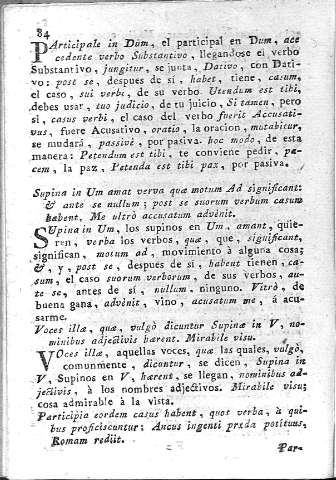 84
PArticipale in Dum, el participal en Dum, acc
cedente verbo Substantivo, llegandose el verbo
Substantivo, jungitur, se junta, Dativo, con Dati-
vo: post se, despues de sí, habet, tiene, casum,
el caso, sui verbi, de su verbo. Utendum est tibi,
debes usar, tuo judicio, de tu juicio, Si tamen, pero
si, casus verbi, el caso del verbo fuerit Accusati-
vus, fuere Acusativo, oratio, la oracion, mutabitur,
se mudará, passivè, por pasiva. hoc modo, de esta
manera: Petendum est tibi, te conviene pedir, pa-
cem, la paz, Petenda est tibi pax, por pasiva.
Supina in Um amat verva quæ motum Ad significant:
& ante se nullum; post se suorum verbum casum
habent. Me ultrò accusatum advènit.
SUpina in Um, los supinos en Um, amant, quie-
ren, verba los verbos, quæ, que, significant,
significan, motum ad, movimiento à alguna cosa;
&, y, post se, despues de sí, habent tienen, ca-
sum, el caso suorum verborum, de sus verbos, an-
te se, antes de sí, nullum, ninguno. Vltrò, de
buena gana, advènit, vino, accusatum me, á acu-
sarme.
Voces illæ, quæ, vulgò dicuntur Supinæ in V, no-
minibus adjectivis hærent. Mirabile visu.
VOces illæ, aquellas voces, quæ las quales, vulgò,
comunmente, dicuntur, se dicen, Supina in
V, Supinos en V, hærent, se llegan, nominibus ad-
jectivis, à los nombres adjectivos. Mirabile visu;
cosa admirable à la vista.
Participia eordem casus habent, quos verba, à qui-
bus proficiscuntur; Ancus ingenti præda potitus,
Romam rediit.
Par-